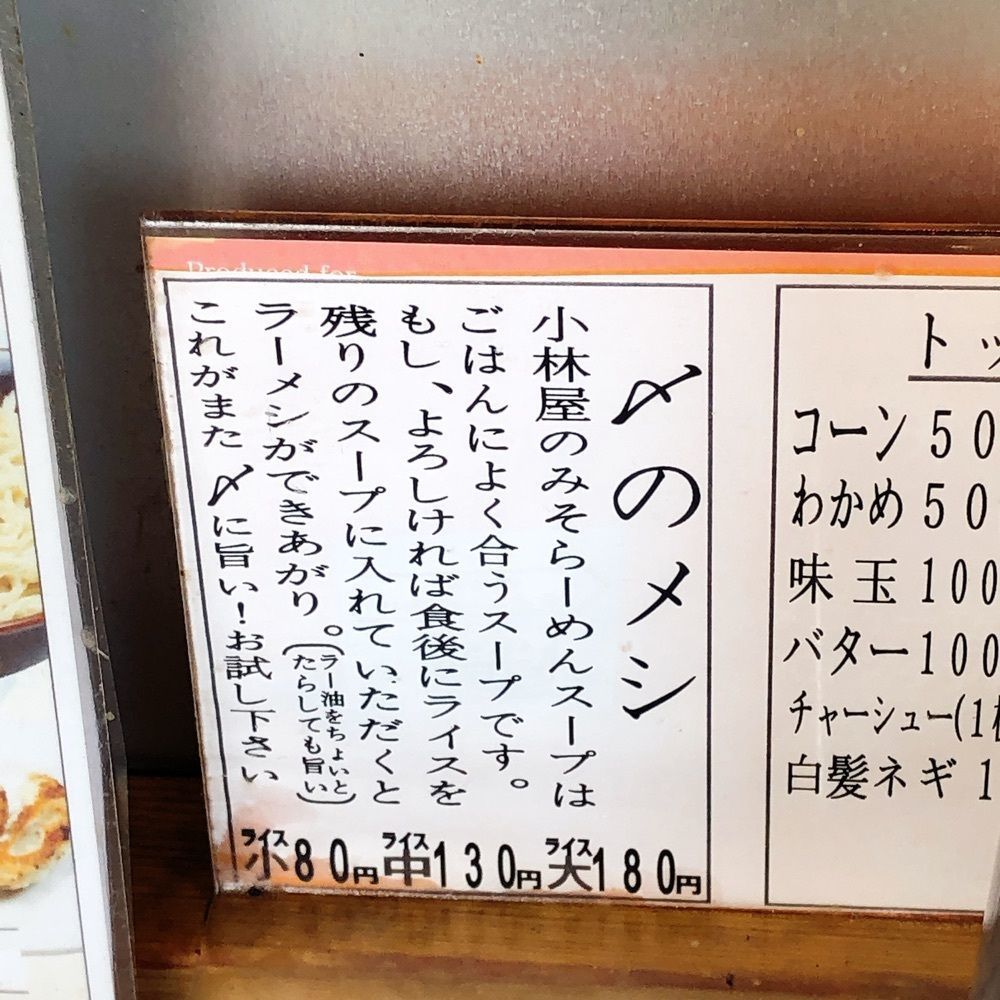 Produced for
〆のメシ
小林屋のみそらーめんスープは
ごはんによく合うスープです。
もし、よろしければ食後にライスを
残りのスープに入れていただくと
ラーメシができあがり。(ラー油をちょいと
たらしても旨い)
これがまた〆に旨い!お試し下さい
ライス小80円 ライス中130円 ライス大180円
トッ
コーン 50
わかめ 50
味玉 100
バター 100
チャーシュー(1
白髪ネギ 1